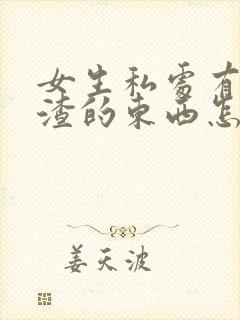 女生私处有
渣的东西怎
姜天波